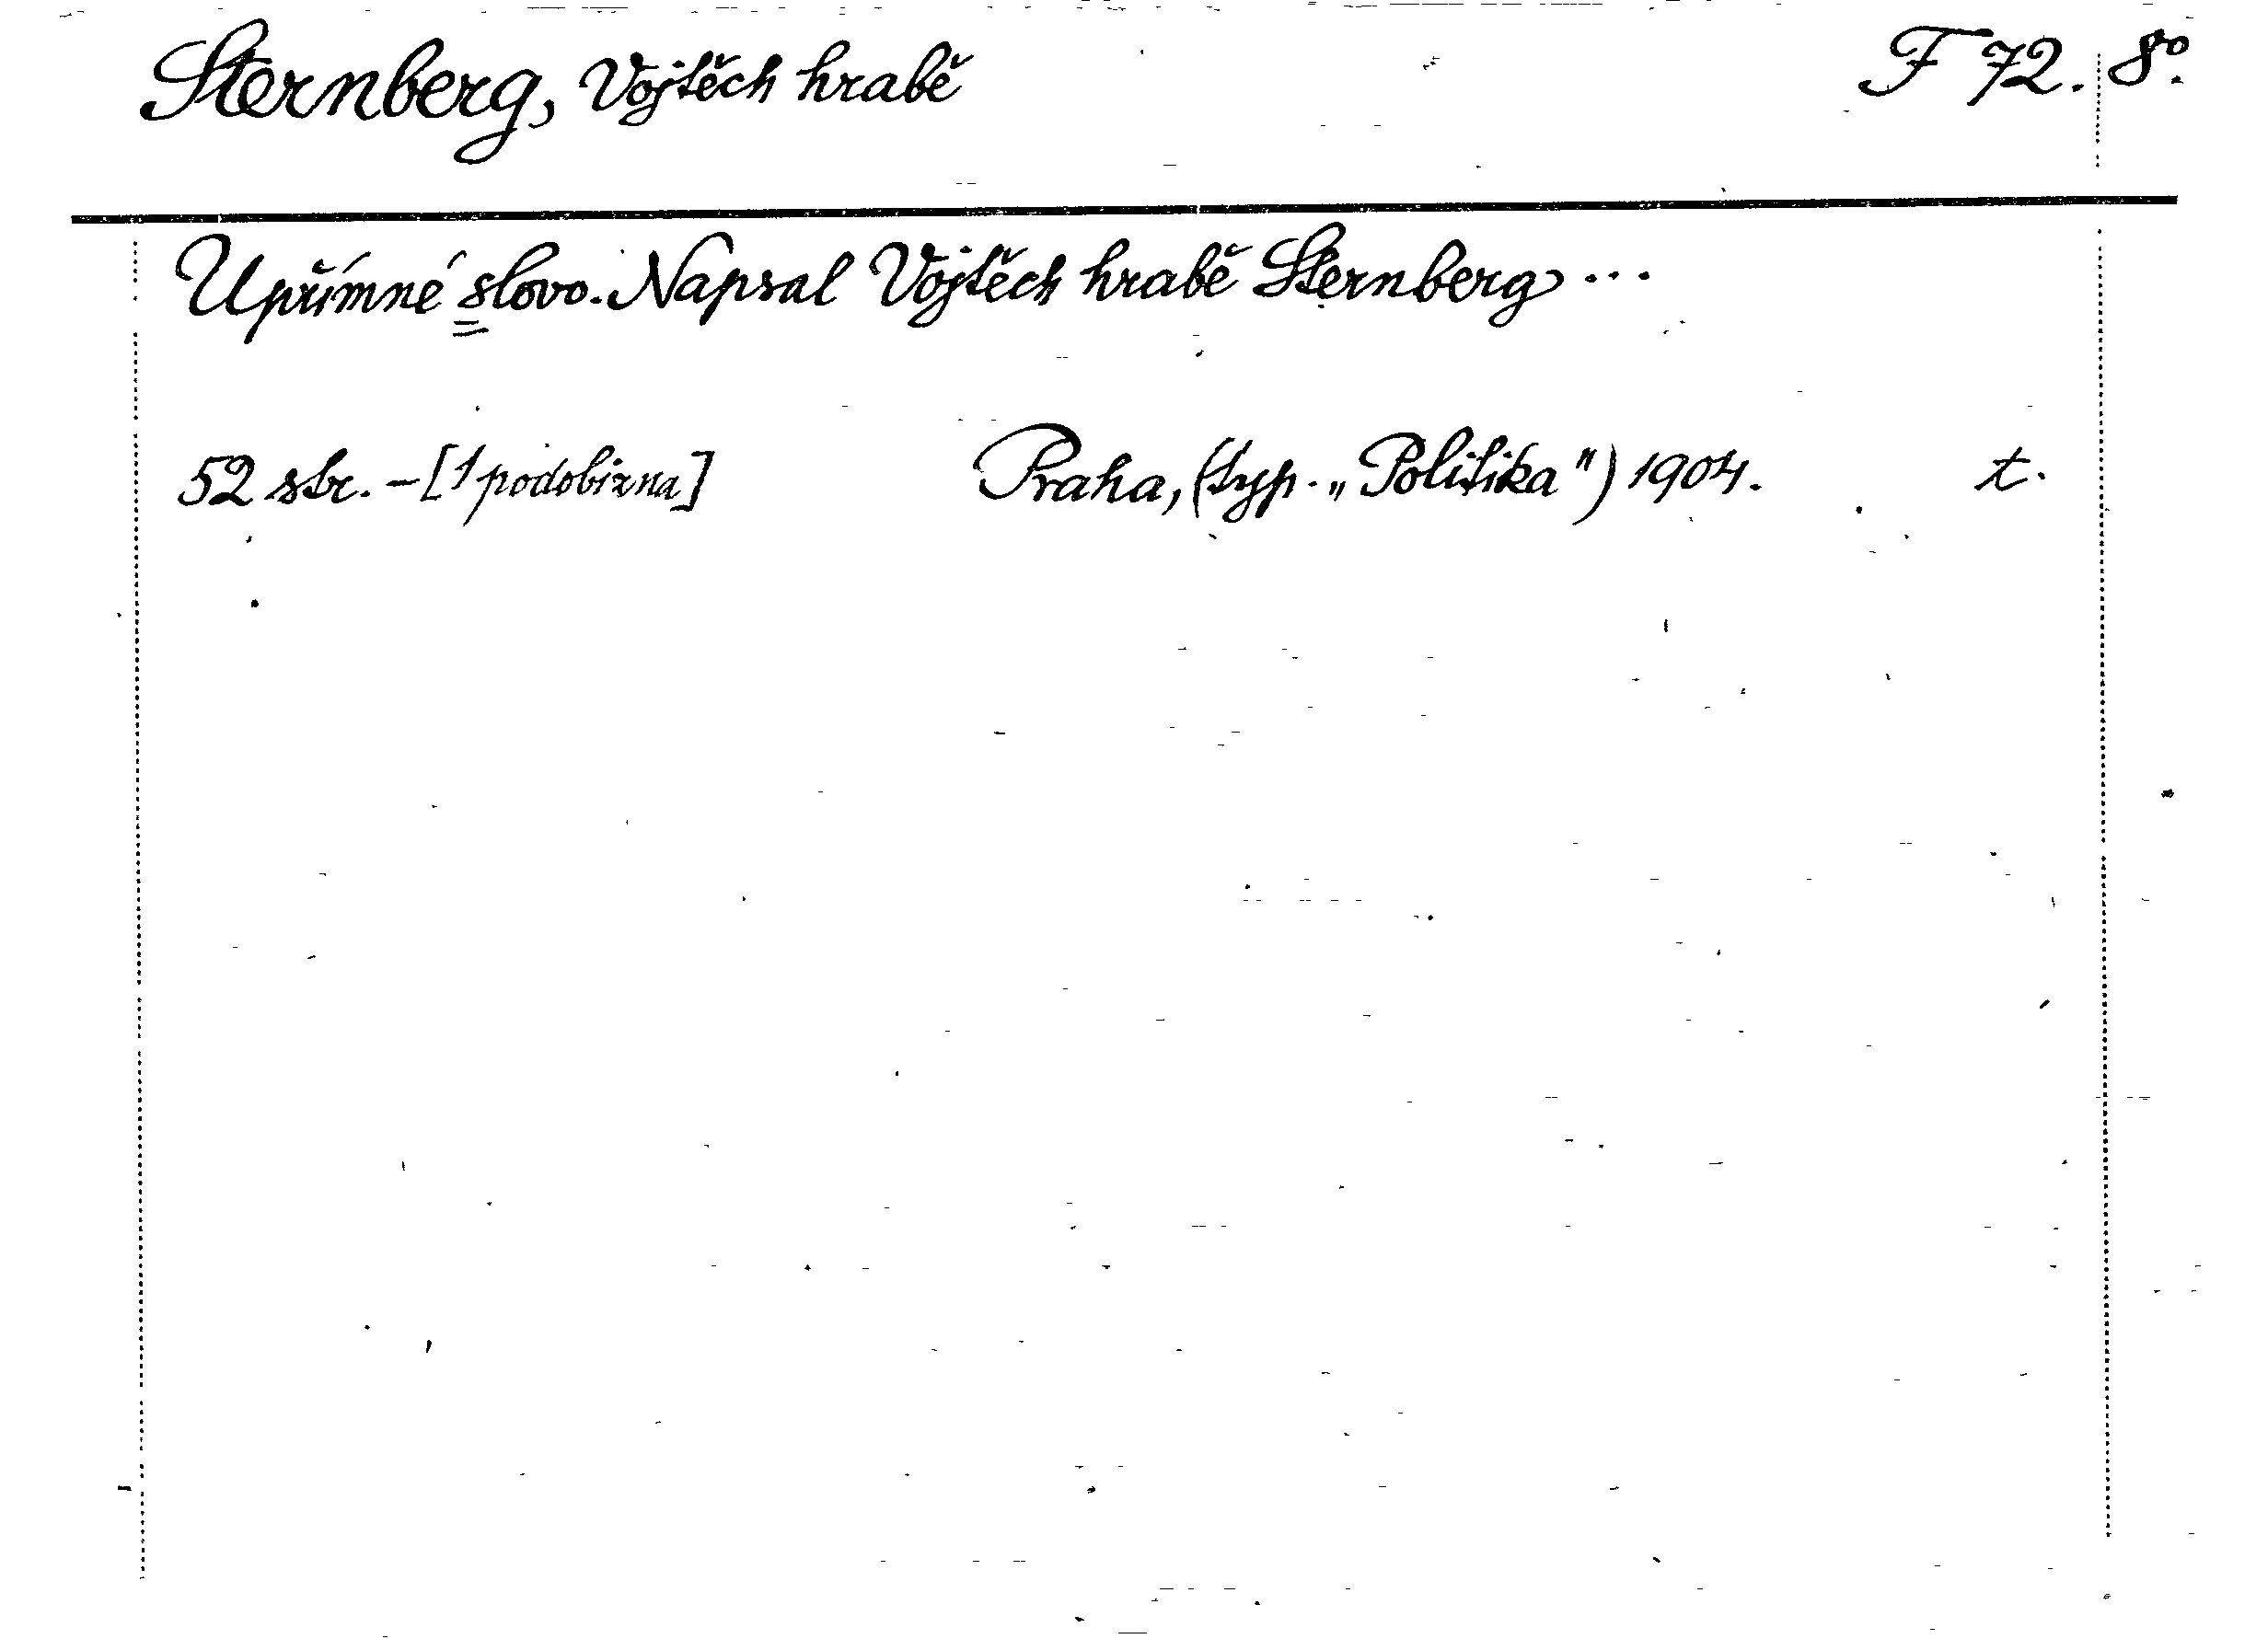 Sternberg, Vojtěch hrabě F 72. 8º.
Upřímné slovo. Napsal Vojtěch hrabě Sternberg ...
52 str. – [1 podobizna] Praha, (typ. „Politika") 1904. t.